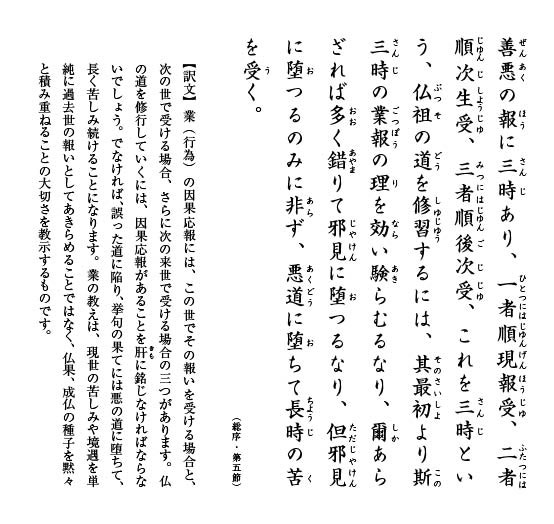 善悪の報に三時あり、一者順現報受、二者
順次生受、三者順後次受、これを三時とい
う、仏祖の道を修習するには、其最初より斯
三時の業報の理を効い験らむるなり、爾あら
ざれば多く錯りて邪見に堕つるなり、但邪見
に堕つるのみに非ず、悪道に堕ちて長時の苦
を受く。
（総序・第五節）
【訳文】業（行為）の因果応報には、この世でその報いを受ける場合と、
次の世で受ける場合、さらに次の来世で受ける場合の三つがあります。仏
の道を修行していくには、因果応報があることを肝に銘じなければならな
いでしょう。でなければ、誤った道に陥り、挙句の果てには悪の道に堕ちて、
長く苦しみ続けることになります。業の教えは、現世の苦しみや境遇を単
純に過去世の報いとしてあきらめることではなく、仏果、成仏の種子を黙々
と積み重ねることの大切さを教示するものです。